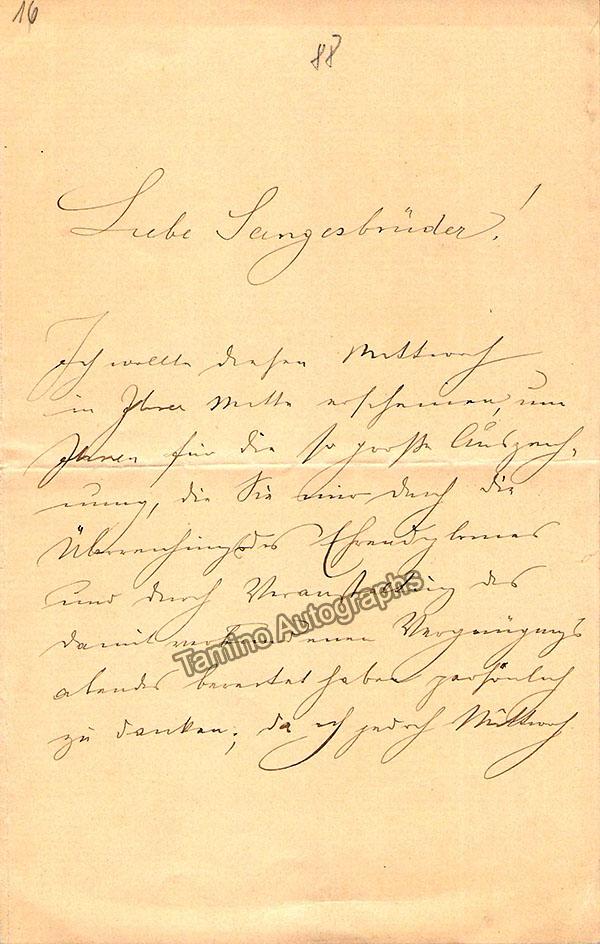 16
88
Liebe Sangesbrüder!
Ich wollte diesen Mittwoch
in Ihrer Mitte erscheinen, um
Ihnen für die so große Auszeich,
nung, die Sie mir durch die
Überreichung des Ehrendiplomes
und durch Veranstaltung des
damit verbundenen Vergnügungs
abendes bereitet haben persönlich
zu danken; da ich jedoch Mittwoch
Tamino Autographs